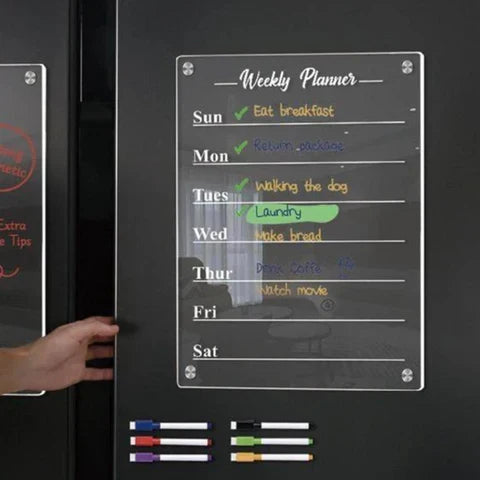 Weekly Planner
Sun Eat breakfast
Mon Return package
Tues Walking the dog
Laundry
Wed Make bread
Thur Drink Coffe
Watch movie
Fri
Sat
Extra
Tips